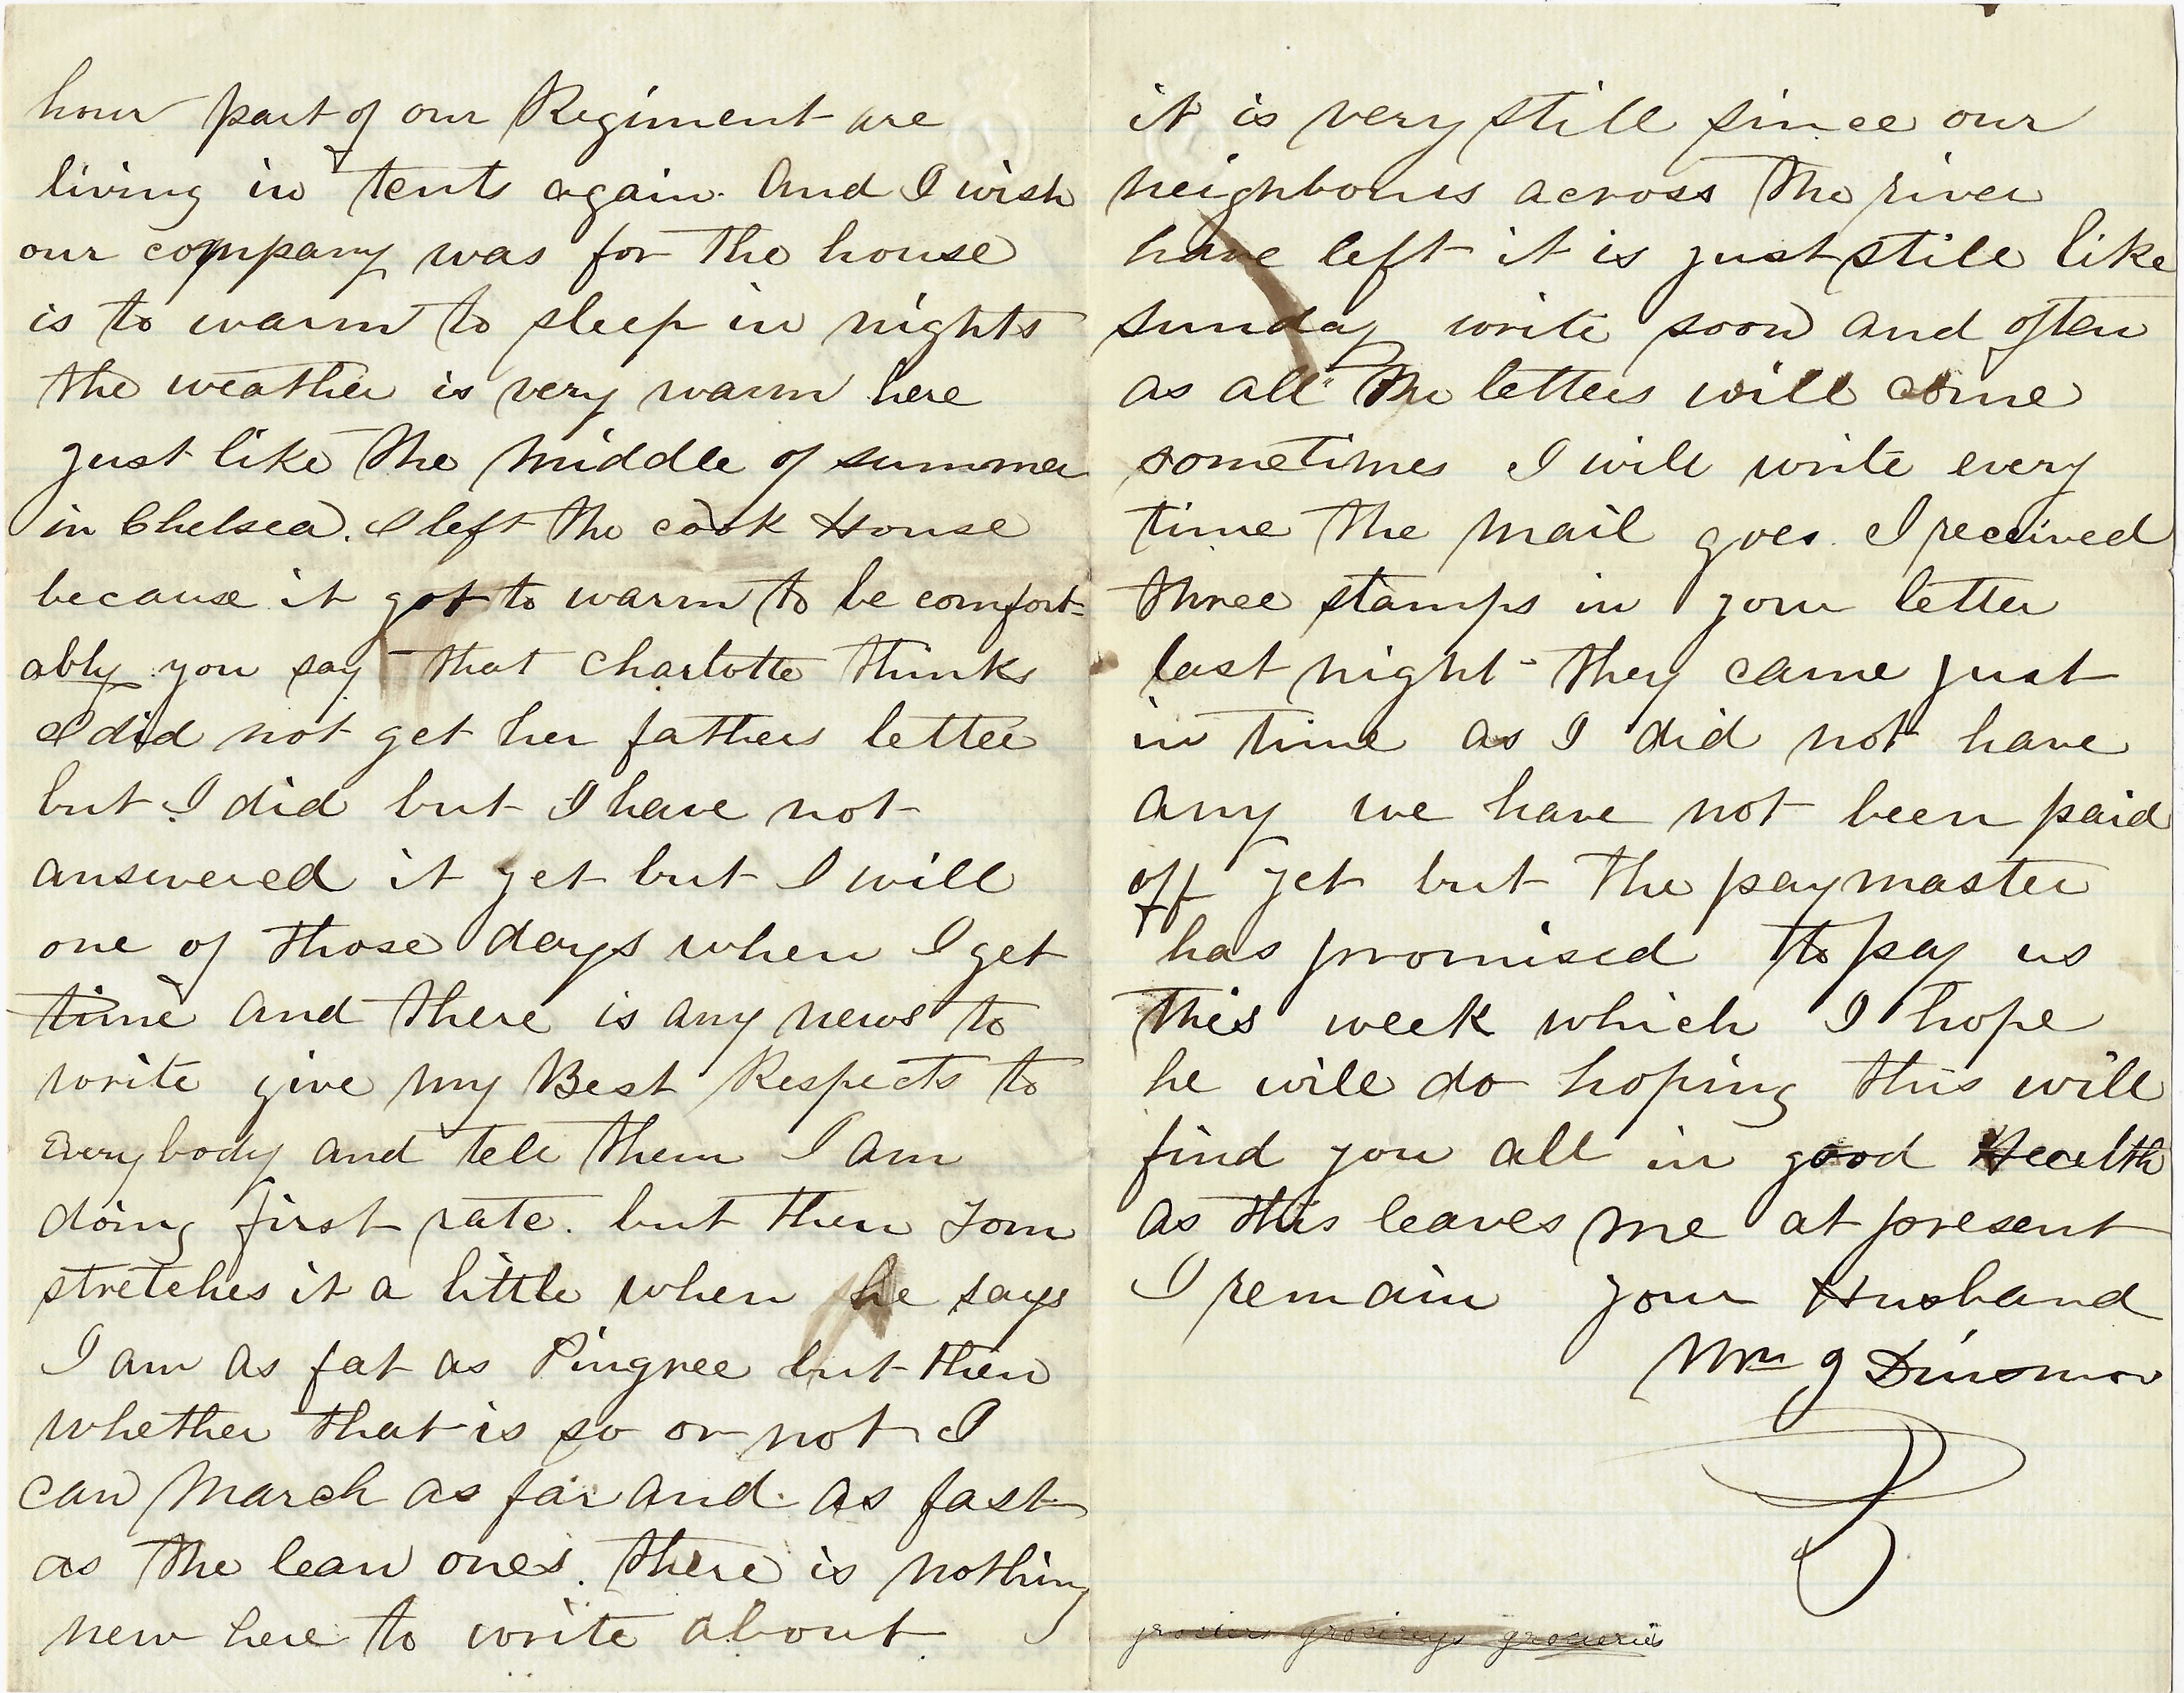 hour part of our Regiment are
living in tents again. And I wish
our company was for the house
is to warm to sleep in nights
the weather is very warm here
just like the middle of summer
in Chelsea. I left the cook House
because it got to warm to be comfort=
ably you say that Charlotte thinks
I did not get her fathers letter
but I did but I have not
answered it yet but I will
one of those days when I get
time and there is any news to
write give my Best Respects to
Everybody and tell them I am
doing first rate. but then Tom
stretches it a little when he says
I am as fat as Pingree but then
whether that is so or not I
can March as far and as fast
as the lean ones. there is nothing
new here to write about.
it is very still since our
neighbours across the river
have left it is just still like
sunday write soon and often
as all the letters will come
sometimes I will write every
time the mail goes. I received
three stamps in your letter
last night they came just
in time as I did not have
any we have not been paid
off yet but the paymaster
has promised to pay us
this week which I hope
he will do hoping this will
find you all in good Health
as this leaves me at present
I remain your Husband
Wm g Dinsmor
grociers grocireys groceries